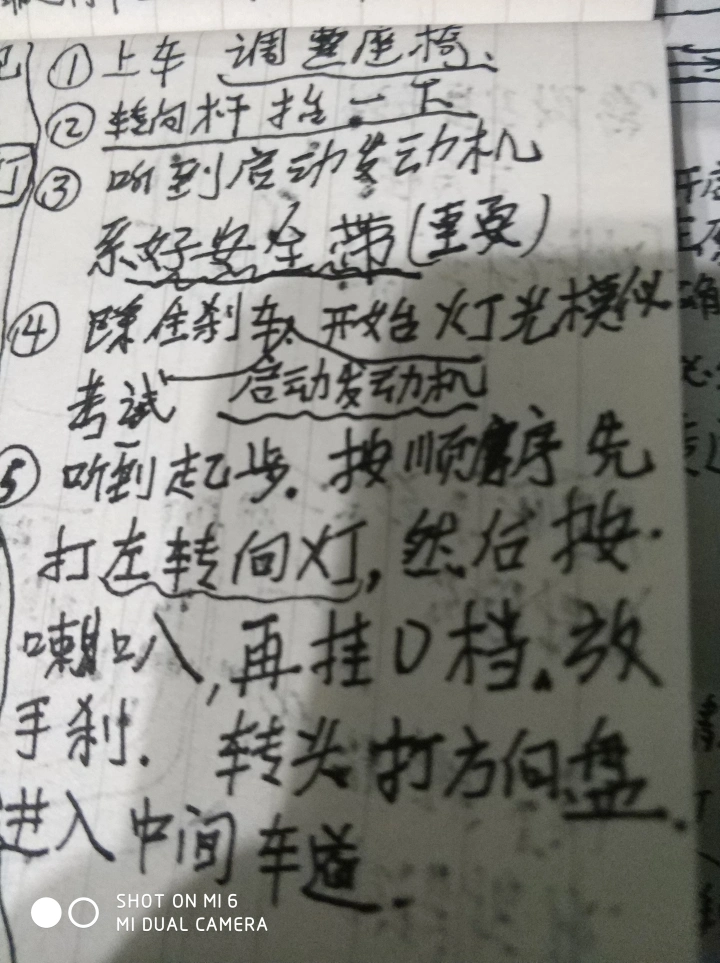 ①上车 调整座椅、
②转向杆抬一下
③ 听到启动发动机
系好安全带(重要)
④ 踩住刹车、开始灯光模似
考试 启动发动机
⑤ 听到起步. 按顺序先
打左转向灯, 然后按
喇叭, 再挂D档. 放
手刹. 转头打方向盘
进入中间车道.
SHOT ON MI 6
MI DUAL CAMERA